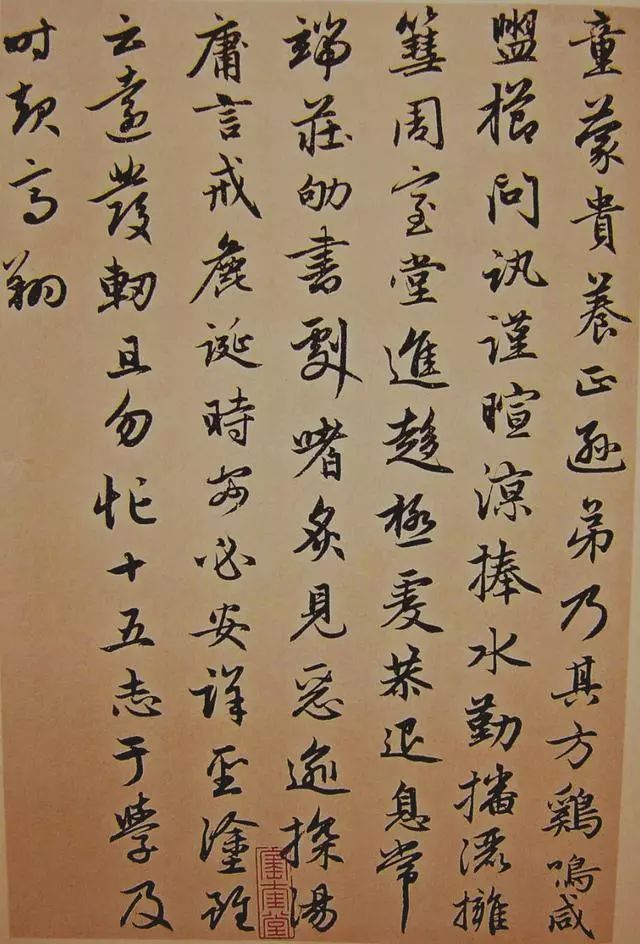 童蒙貴養正遜弟乃其方鷄鳴咸
盥櫛問訊謹暄涼捧水勤播灑擁
篲周室堂進趨極虔恭退息常
端莊劬書劇嗜炙見惡逾探湯
庸言戒麁誕時行必安詳聖塗雖
云遠發軔且勿忙十五志于學及
时起高翔